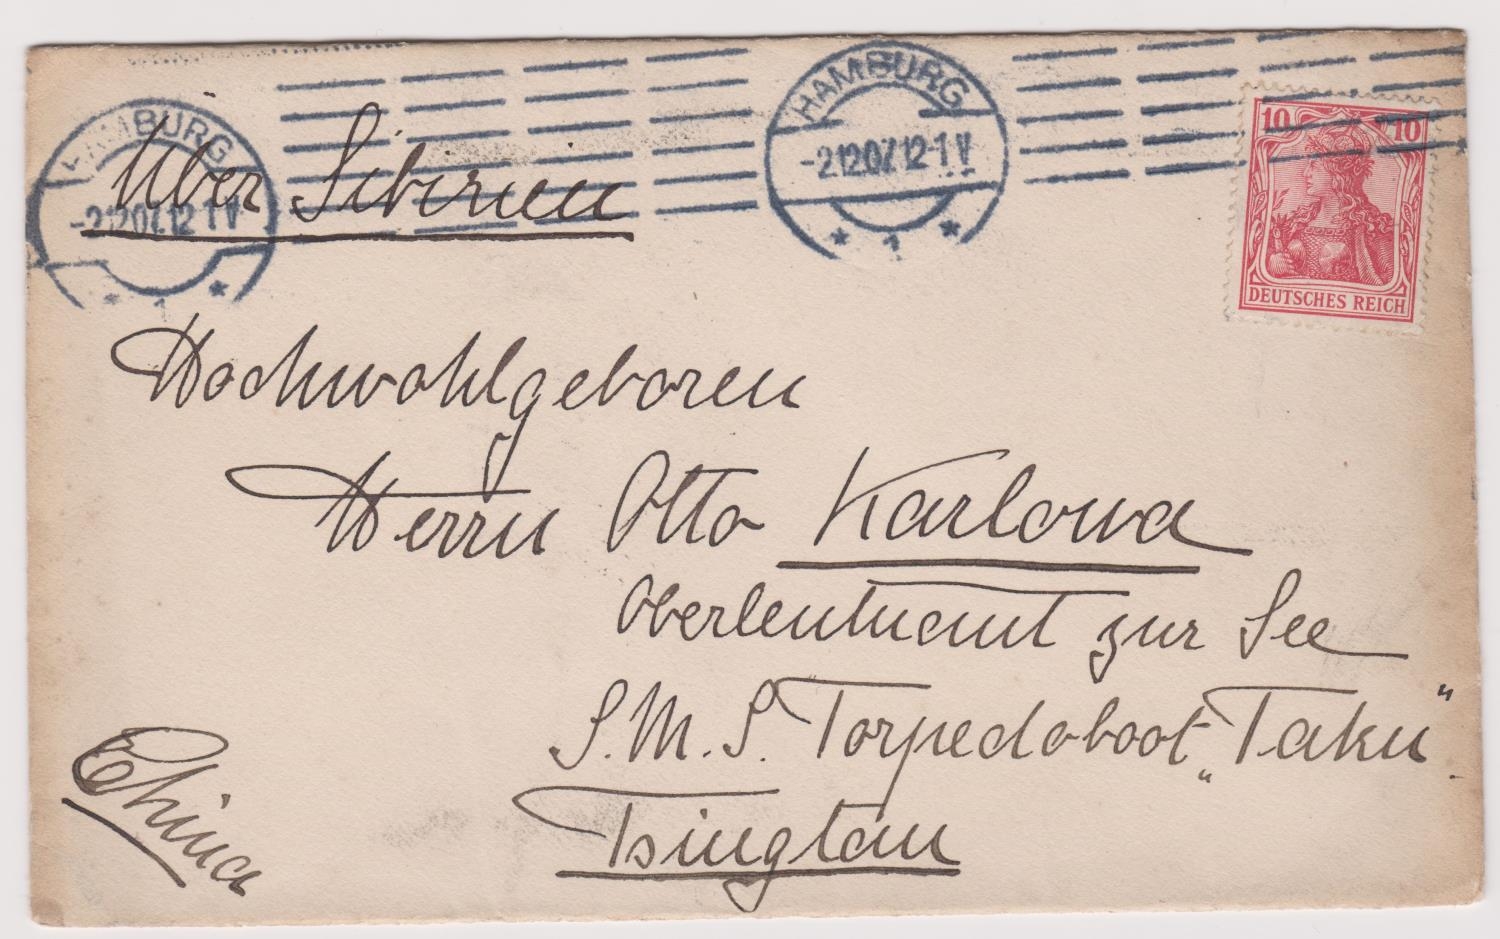 HAMBURG
-2.12.07.12-1V
* 1 *
HAMBURG
-2.12.07.12-1V
* 1 *
10 10
DEUTSCHES REICH
Über Sibirien
Hochwohlgeboren
Herrn Otto Karlowa
Oberleutnant zur See
S.M.S. Torpedoboot „Taku“.
Tsingtau
China